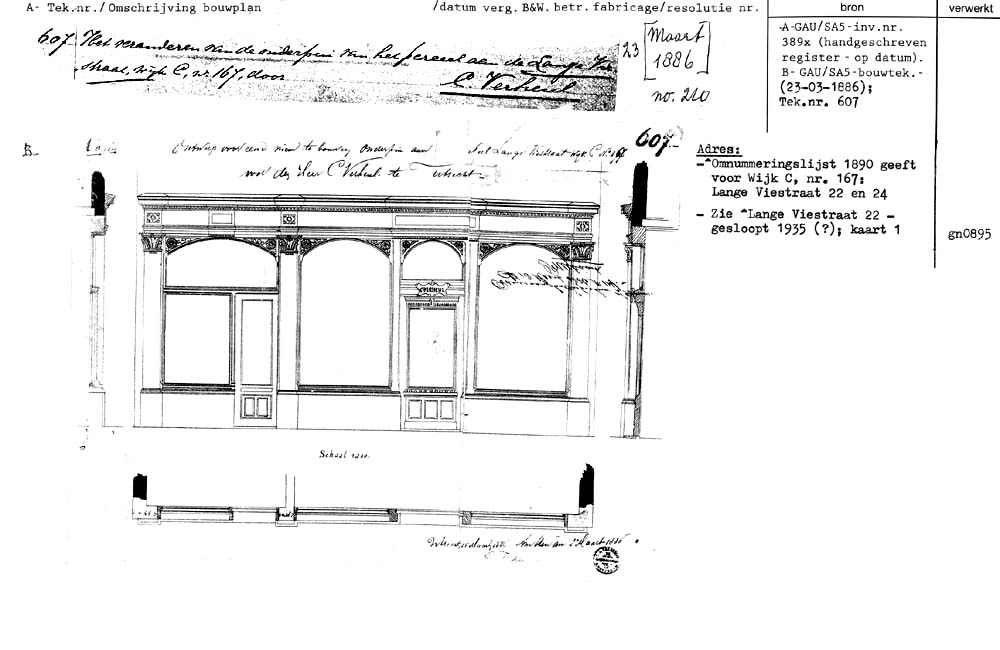 A- Tek.nr./Omschrijving bouwplan
/datum verg. B&W. betr. fabricage/resolutie nr.
bron
verwerkt
607. Het veranderen van de onderpui van het perceel aan de Lange Vie-
straat, wijk C, nr. 167, door
C. Verheul
23 [Maart
1886]
no. 210
-A-GAU/SA5-inv.nr.
389x (handgeschreven
register - op datum).
B- GAU/SA5-bouwtek.-
(23-03-1886);
Tek.nr. 607
B
607.
Ontwerp voor eene nieuw te bouwen onderpui aan
Lange Viestraat wijk C No 167
voor den Heer C Verheul te Utrecht
C.VERHEUL
Adres:
-*Omnummeringslijst 1890 geeft
voor Wijk C, nr. 167:
Lange Viestraat 22 en 24
- Zie *Lange Viestraat 22 -
gesloopt 1935 (?); kaart 1
gn0895
Schaal
Maart 1886